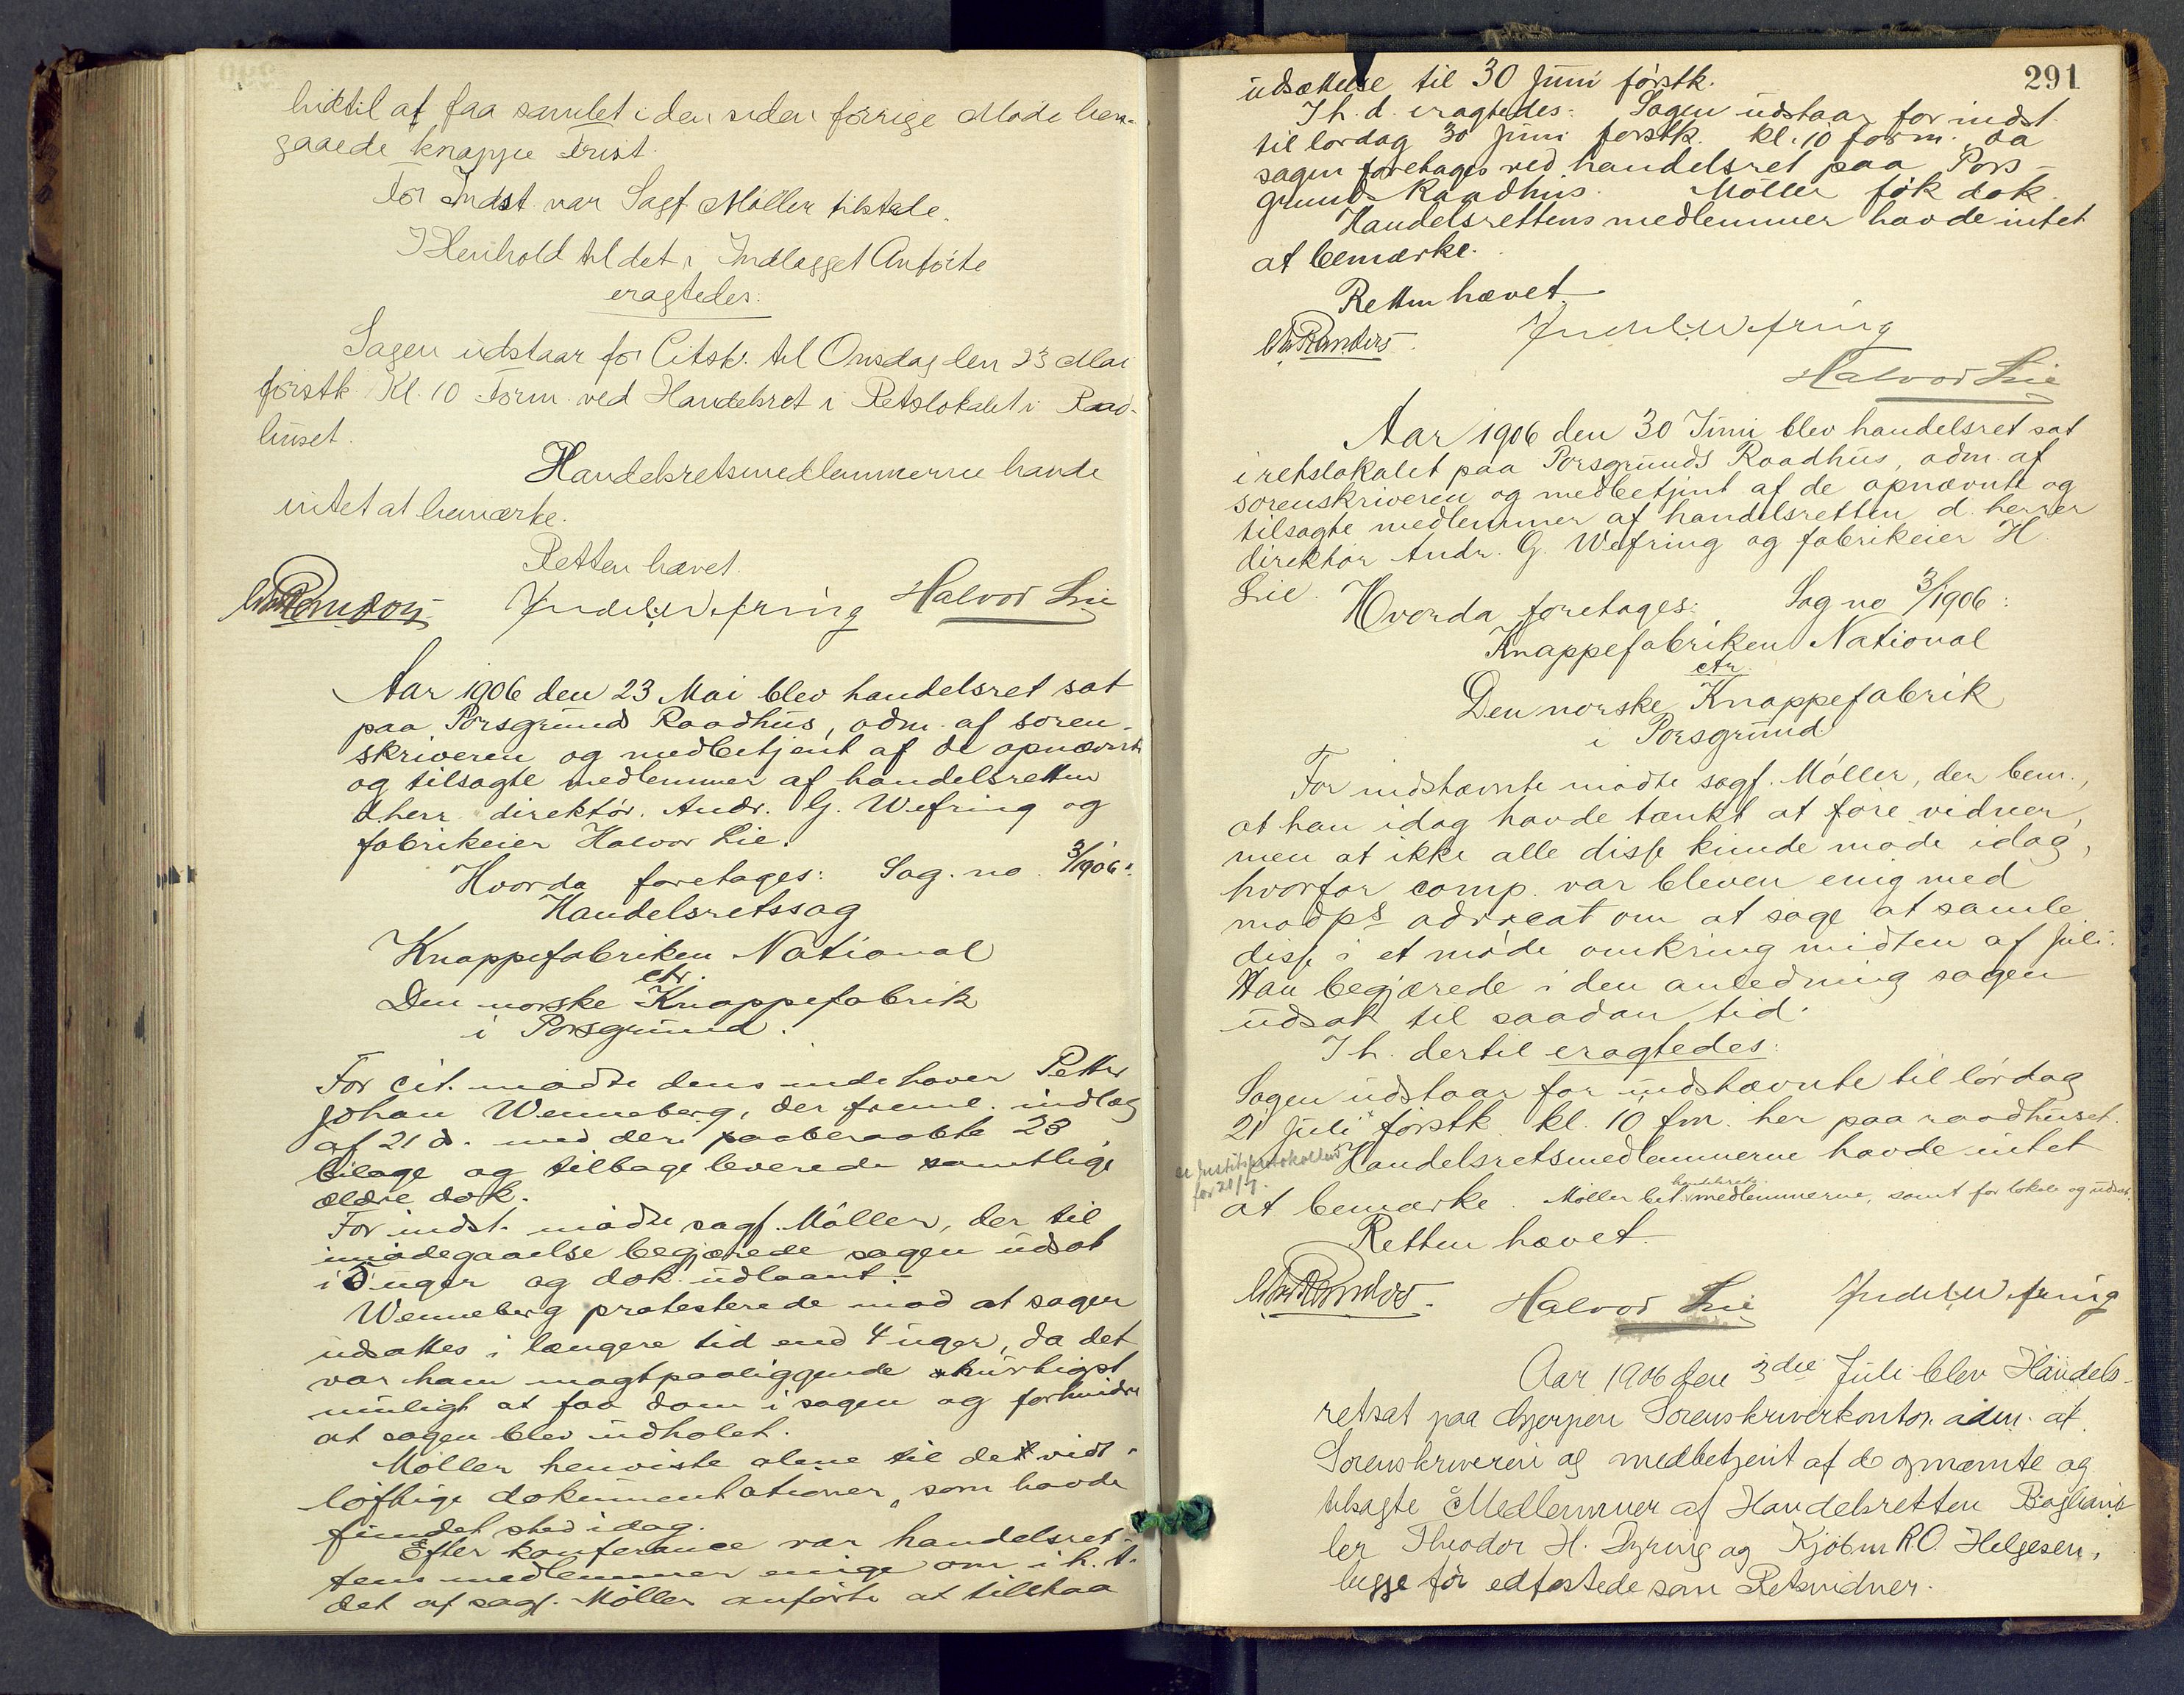 hidtil at faa samlet i den siden forrige Møde hen-
gaaede knappe Frist.
For Indst. var Sagf. Møller tilstede.
I Henhold til det i Indlægget Anførte
eragtedes:
Sagen udstaar for Citsk. til Onsdag den 23 Mai
førstk. Kl. 10 Form. ved Handelsret i Retslokalet i Raad-
huset.
Handelsretsmedlemmerne havde
intet at bemærke.
Retten hævet.
Andr. G. Wefring Halvor Lie
Aar 1906 den 23 Mai blev handelsret sat
paa Porsgrund Raadhus, adm. af soren-
skriveren og medbetjent af de opnævnte
og tilsagte medlemmer af handelsretten
d.herr. direktør. Andr. G. Wefring og
fabrikeier Halvor Lie.
Hvorda foretages: Sag. no. 3/1906:
Handelsretssag
Knappefabriken National
ctr.
Den norske Knappefabrik
i Porsgrund.
For cit. mødte dens indehaver Petter
Johan Wenneberg, der freml. indlæg
af 21 d. med deri paaberaabte 23
bilage og tilbageleverede samtlige
ældre dok.
For indst. mødte sagf. Møller, der til
imødegaaelse begjærede sagen udsat
i 5 uger og dok. udlaant.
Wenneberg protesterede mod at sagen
udsattes i længere tid end 4 uger, da det
var ham magtpaaliggende hurtigst
muligt at faa dom i sagen og forhindre
at sagen blev udhalet.
Møller henviste alene til de vidt-
løftige dokumentationer, som havde
fundet sted idag.
Efter konferance var handelsret-
tens medlemmer enige om i h. t.
det af sagf. Møller anførte at tilstaa
291
udsættelse til 30 Juni førstk.
I h. d. eragtedes: Sagen udstaar for indst.
til lørdag 30 Juni førstk. kl. 10 form. da
sagen foretages ved handelsret paa Pors-
grunds Raadhus. Møller fik dok.
Handelsrettens medlemmer havde intet
at bemærke.
Retten hævet.
Andr. G. Wefring
Halvor Lie
Aar 1906 den 30 Juni blev handelsret sat
i retslokalet paa Porsgrunds Raadhus, adm. af
sorenskriveren og medbetjent af de opnævnte og
tilsagte medlemmer af handelsretten d. herrer
direktør Andr. G. Wefring og fabrikeier H.
Lie.
Hvorda foretages: Sag no 3/1906:
Knappefabriken National
ctr.
Den norske Knappefabrik
i Porsgrund
For indstævnte mødte sagf. Møller, der bem.,
at han idag havde tænkt at føre vidner,
men at ikke alle disse kunde møde idag,
hvorfor comp. var bleven enig med
modps advocat om at søge at samle
disse i et møde omkring midten af Juli.
Han begjærede i den anledning sagen
udsat til saadan tid.
I h. dertil eragtedes:
Sagen udstaar for indstævnte til lørdag
21 Juli førstk. kl. 10 fm. her paa raadhuset.
Handelsretsmedlemmerne havde intet
se Justitsprotokollen
for 21/7.
at bemærke. Møller bet. handelsrets-medlemmerne, samt for lokale og udsæt.
Retten hævet.
Halvor Lie Andr. G. Wefring
Aar 1906 den 3die Juli blev Handels-
ret sat paa Gjerpen Sorenskriverkontor adm. af
Sorenskriveren og medbetjent af de opnævnte og
tilsagte Medlemmer af Handelsretten Boghand-
ler Theodor H. Dyring og Kjøbm R.O. Helgesen,
begge før edfæstede som Retsvidner.